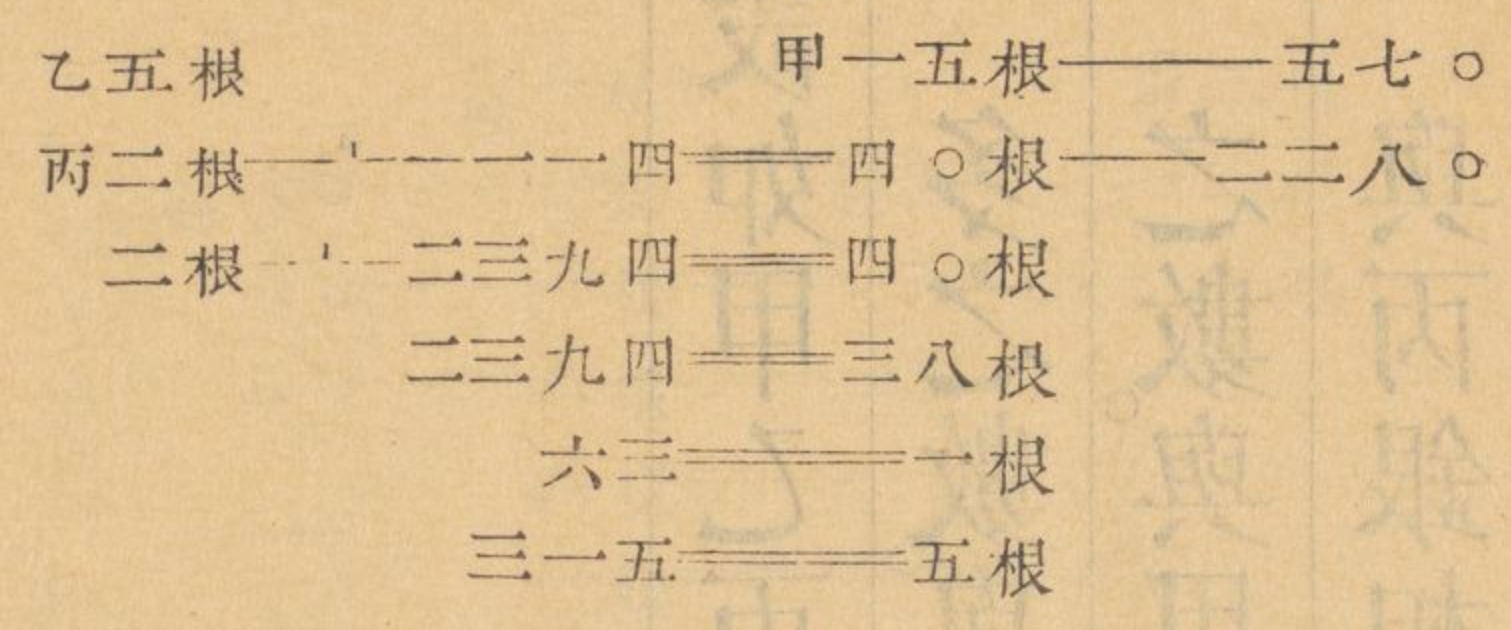 乙五根 甲一五根——五七○
丙二根⊥一一四＝四○根——二二八○
二根⊥二三九四＝四○根
二三九四＝三八根
六三＝一根
三一五＝五根